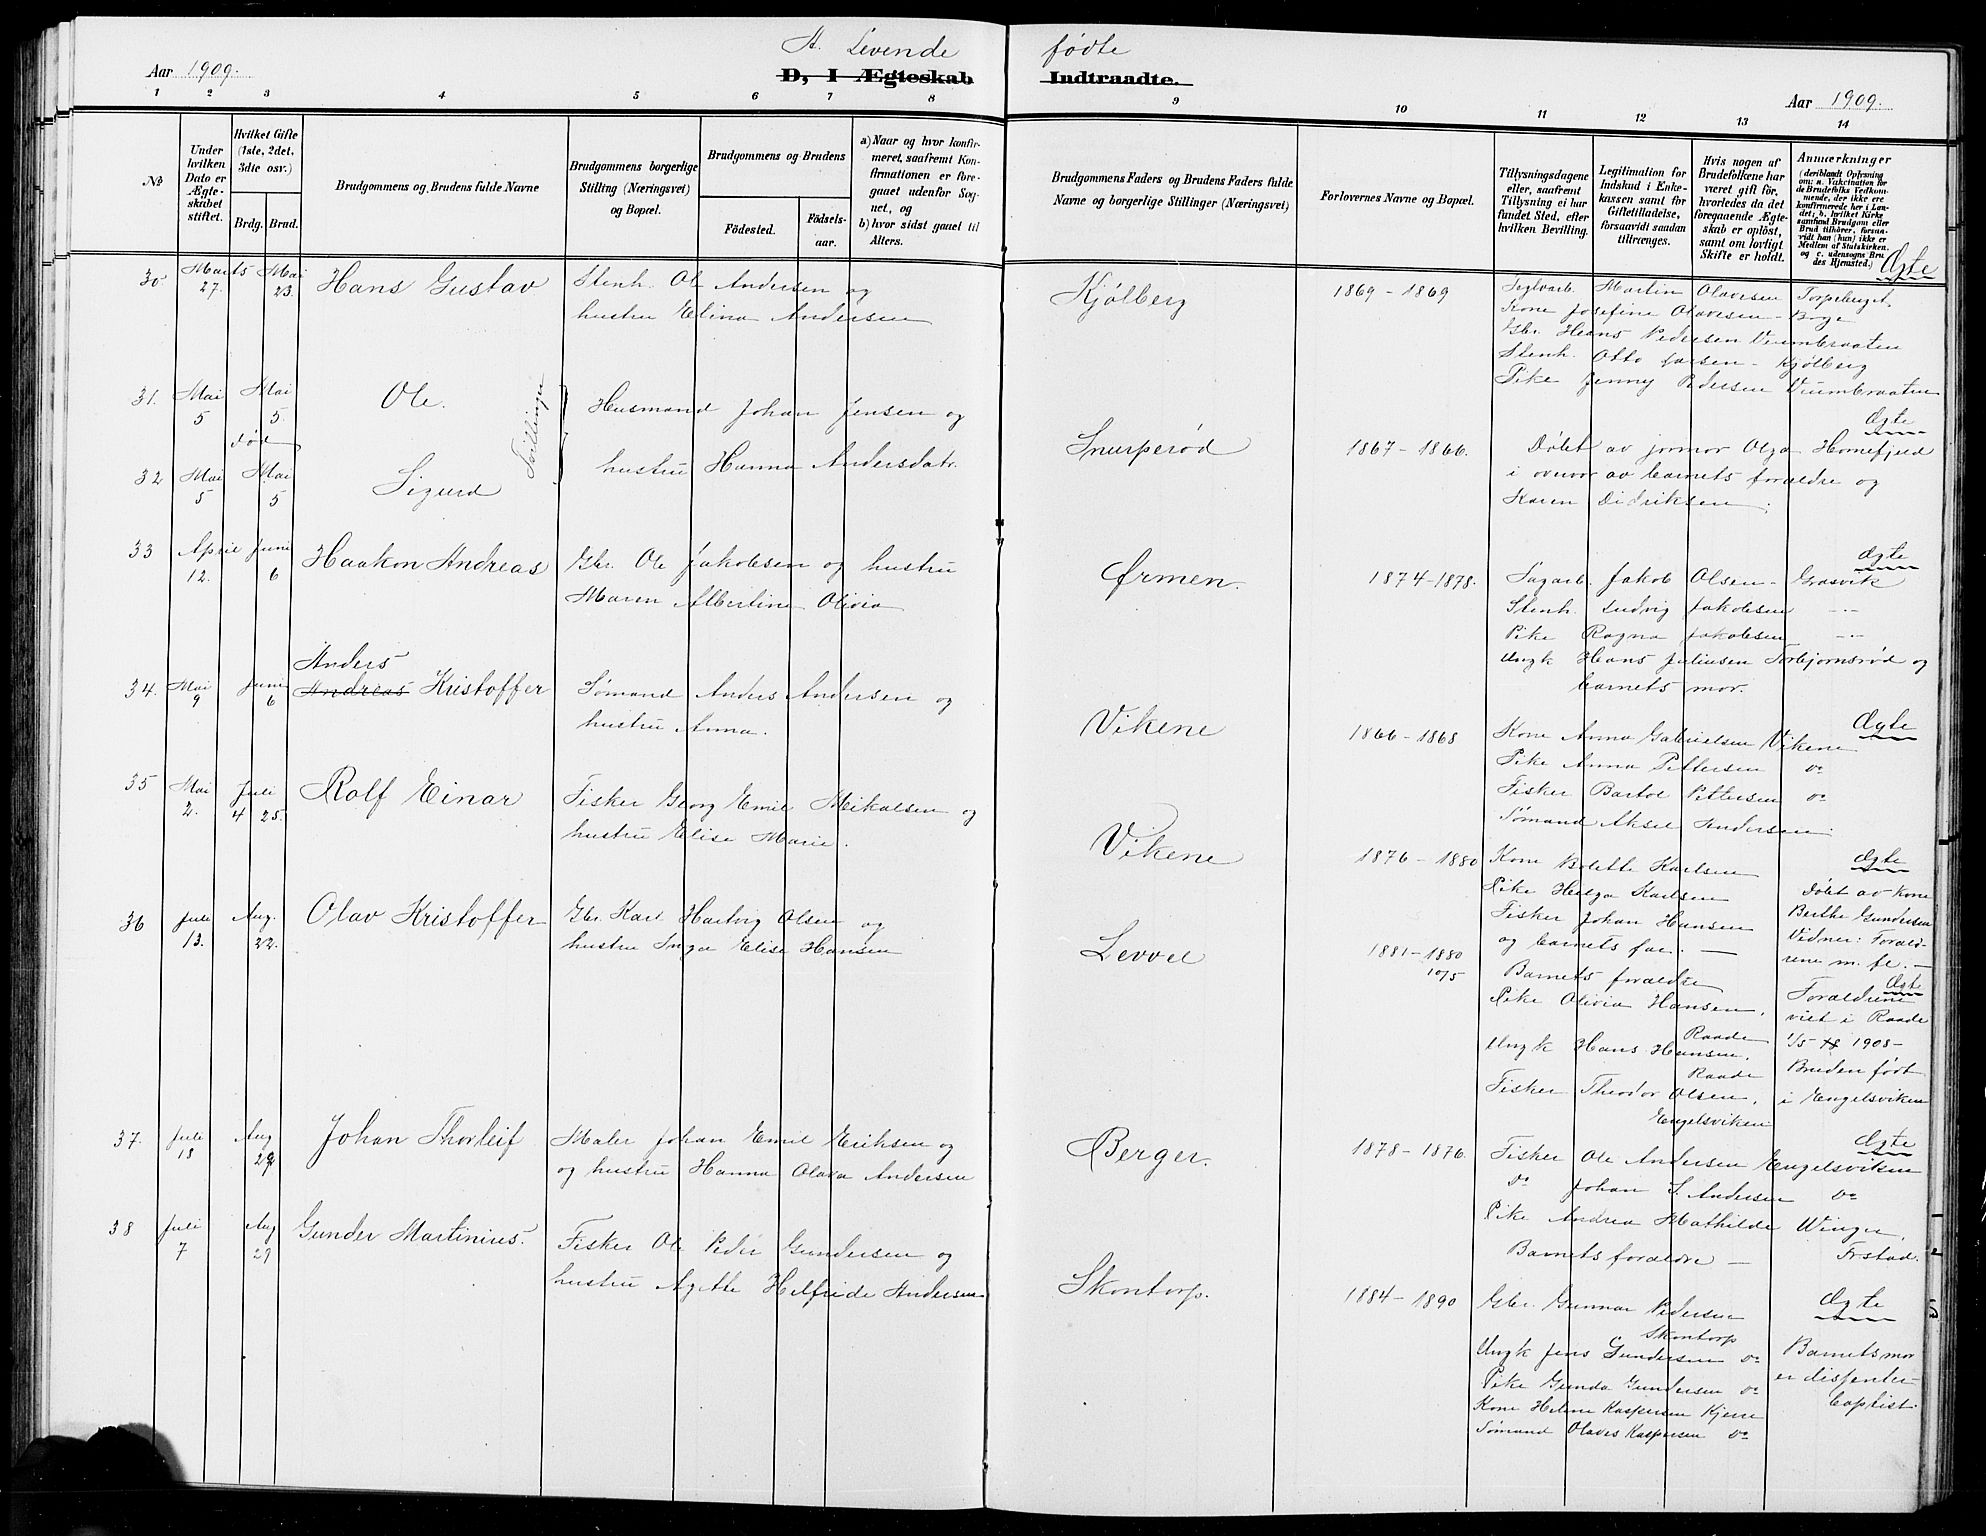 A. Levende fødte
Aar 1909.
D, I Ægteskab Indtraadte.
Aar 1909.
1 2 3 4 5 6 7 8 9 10 11 12 13 14
№
Under hvilken Dato er Ægteskabet stiftet.
Hvilket Gifte (1ste, 2det, 3dte osv.)
Brdg. Brud.
Brudgommens og Brudens fulde Navne
Brudgommens borgerlige Stilling (Næringsvei) og Bopæl.
Brudgommens og Brudens
Fødested.
Fødselsaar.
a) Naar og hvor konfirmeret, saafremt Konfirmationen er foregaaet udenfor Sognet, og
b) hvor sidst gaaet til Alters.
Brudgommens Faders og Brudens Faders fulde Navne og borgerlige Stillinger (Næringsvei)
Forlovernes Navne og Bopæl.
Tillysningsdagene eller, saafremt Tillysning ei har fundet Sted, efter hvilken Bevilling.
Legitimation for Indskud i Enkekassen samt for Giftetilladelse, forsaavidt saadan tiltrænges.
Hvis nogen af Brudefolkene har været gift før, hvorledes da det foregaaende Ægteskab er opløst, samt om lovligt Skifte er holdt.
Anmærkninger (deriblandt Oplysning om: a. Vakcination for de Brudefolks Vedkommende, der ikke ere konfirmerede her i Landet; b. hvilket Kirkesamfund Brudgom eller Brud tilhører, forsaavidt han (hun) ikke er Medlem af Statskirken, og c. udensogns Brudes Hjemsted.)
30 Marts 27. Mai 23. Hans Gustav
Stenh. Ole Andersen og
hustru Elina Andersen
Kjølberg 1869 - 1869
Ægte
Teglarb. Martin Olavesen Torpeberget.
Kone Josefine Olavesen - Borge
Gbr. Hans Pedersen Veumbraaten
Stenh. Otto Larsen - Kjølberg
Pike Jenny Pedersen Veumbraaten
31. Mai 5 Mai 5. død Ole.
Tvillinger
Husmand Johan Jensen og
hustru Hanna Andersdatr.
32 Mai 5 Mai 5 Sigurd
Snurperød 1867 - 1866.
Ægte
Døbt av jormor Olga Homefjeld
i overvær av barnets forældre og
Karen Didriksen.
33 April 12. Juni 6 Haakon Andreas
Gbr. Ole Jakobsen og hustru
Maren Albertine Olivia
Ørmen. 1874-1878.
Ægte
Sagarb. Jakob Olsen - Græsvik
Stenh. Ludvig Jakobsen -"-
Pike Ragna Jakobsen -"-
Ungk Hans Juliusen Torbjørnsrød og
barnets mor.
34. Mai 9 Juni 6
Anders
Andreas Kristoffer
Sømand Anders Andersen og
hustru Anna.
Vikene 1866 - 1868
Ægte
Kone Anna Gabrielsen Vikene
Pike Anna Pettersen do
Fisker Bartol Pettersen do
Sømand Aksel Andersen.
35 Mai 2. Juli 4 25. Rolf Einar
Fisker Georg Emil Mikalsen og
hustru Elise Marie.
Vikene 1876 - 1880
Ægte
Kone Bolette Karlsen
Pike Helga Karlsen
Fisker Johan Hansen
og barnets far. —
Døbt av kone
Berthe Gundersen
Vidner: Foræld-
rene m. fl. —
36 Juli 13. Aug. 22. Olav Kristoffer
Gbr. Karl Hartvig Olsen og
hustru Inga Elise Hansen
Levvel 1881 - 1880
10/5
Ægte
Barnets forældre
Pike Olivia Hansen,
Raade
Ungk Hans Hansen,
Raade
Fisker Theodor Olsen,
Engelsviken
Forældrene
viet i Raade
1/5 1908 -
Bruden født
i Engelsviken
37. Juli 18 Aug 29 Johan Thorleif
Maler Johan Emil Eriksen og
og hustru Hanna Olava Andersen
Berger. 1878 - 1876.
Ægte
Fisker Ole Andersen Engelsviken
do Johan S. Andersen do
Pike Andrea Mathilde Winger,
Barnets forældre — Frstad.
38 Juli 7 Aug 29 Gunder Martinius.
Fisker Ole Peder Gundersen og
hustru Agathe Helfride Andersen
Skontorp. 1884 - 1890
Ægte
Gbr. Gunnar Pedersen
Skontorp
Ungk Jens Gundersen do
Pike Gunda Gundersen do
Kone Helene Kaspersen Kjerre
Sømand Olaves Kaspersen do
Barnets mor
er dissenter
baptist.